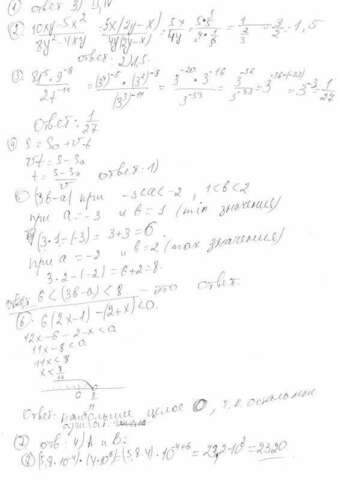 ① ответ 3)
② (10xy-5x²)/(8y²-4xy) = 5x(2y-x)/4y(2y-x) = 5x/4y
ответ: 2) 1,5
③ 81⁻⁵·9⁻⁸/27⁻¹¹ = (3⁴)⁻⁵·(3²)⁻⁸/(3³)⁻¹¹ = 3⁻²⁰·3⁻¹⁶/3⁻³³ = 3⁻³⁶/3⁻³³ = 3⁻³⁶⁻⁽⁻³³⁾ = 3⁻³ = 1/27
Ответ: 1/27
④ S = S₀ + vt
vt = S - S₀
t = (S - S₀)/v ответ - 1)
⑤ (3b-a) при -3<a<-2, 1<b<2
при a = -3 и b = 1 (min значения)
(3·1-(-3) = 3+3 = 6
при a = -2 и b = 2 (max значения)
3·2-(-2) = 6+2 = 8
ответ 6 < (3b-a) < 8 - это ответ.
⑥ 6(2x-1)-(2+x)<0
12x-6-2-x<0
11x-8<0
11x<8
x<8/11
8/11
Ответ: наибольшее целое 0, т.к. остальные
⑦ отв: 4) A и B
⑧ (5,8·10⁻⁴)·(4·10⁶) = (5,8·4)·10⁻⁴⁺⁶ = 23,2·10² = 2320